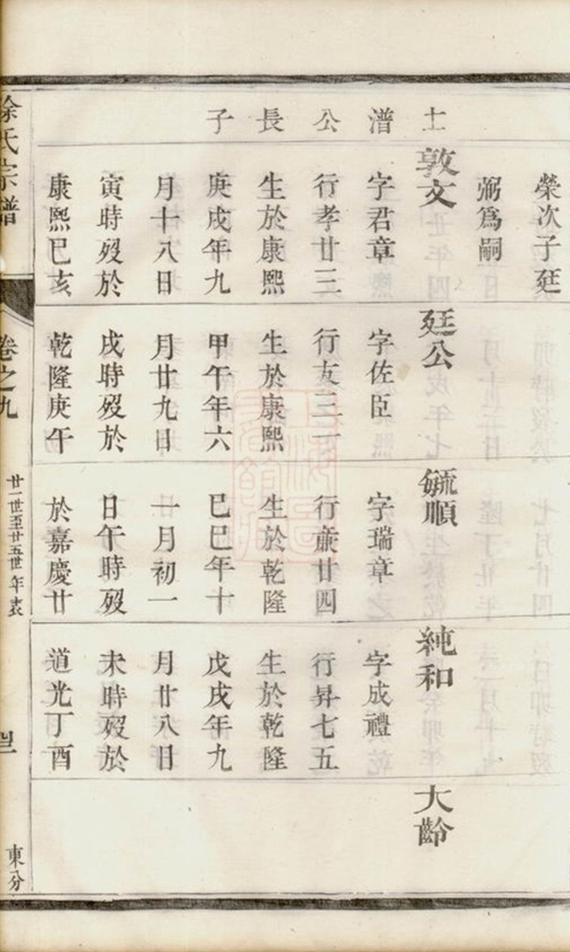 榮次子廷
弼為嗣
士潽公長子
敦文
字君章
行孝廿三
生於康熙
庚戌年九
月十八日
寅時歿於
康熙己亥
廷公
字佐臣
行友三二
生於康熙
甲午年六
月廿九日
戌時歿於
乾隆庚午
毓順
字瑞章
行廿四
生於乾隆
己巳年十
一月初一
日午時歿
於嘉慶廿
純和
字成禮
行昇七五
生於乾隆
戊戌年九
月廿八日
未時歿於
道光丁酉
大齡
徐氏宗譜
卷之九
廿一世至廿五世年表
東分